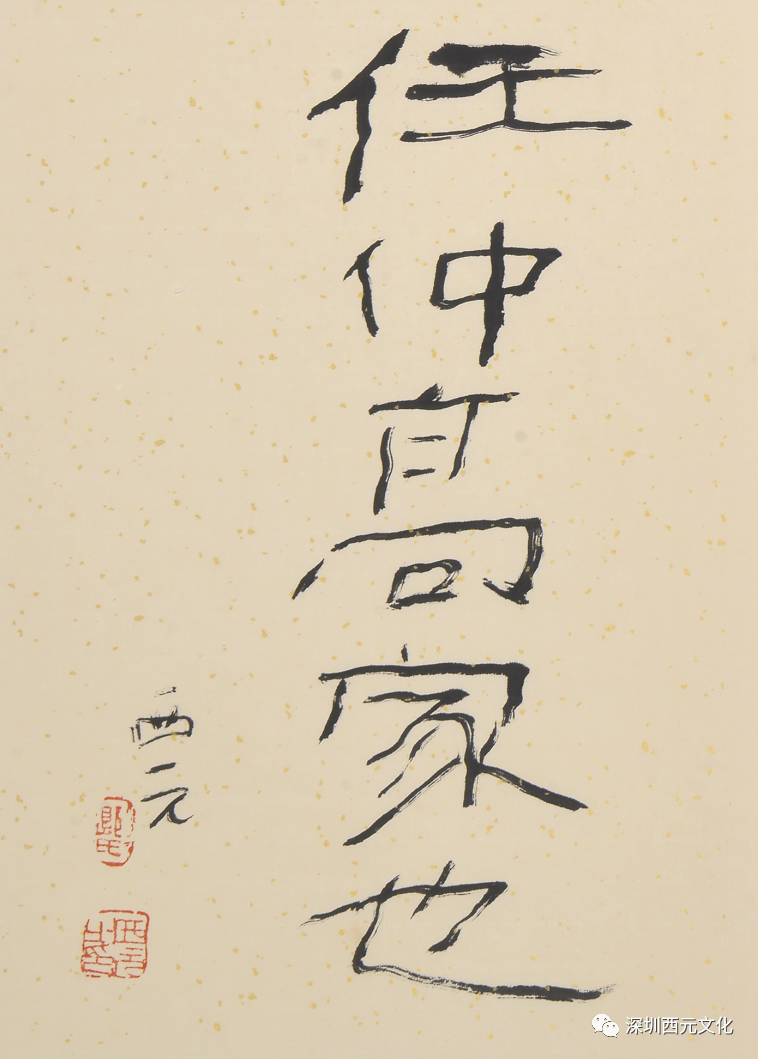 任仲高家也
西元
深圳西元文化